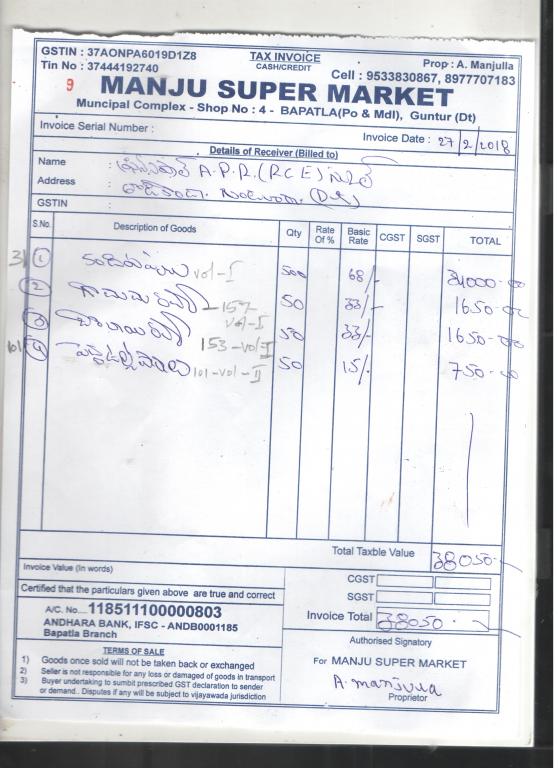 GSTIN : 37AONPA6019D1Z8
Tin No : 37444192740
TAX INVOICE
CASH/CREDIT
Prop : A. Manjulla
Cell : 9533830867, 8977707183
9
MANJU SUPER MARKET
Muncipal Complex - Shop No : 4 - BAPATLA(Po & Mdl), Guntur (Dt)
Invoice Serial Number :
Invoice Date : 27/2/2018
Details of Receiver (Billed to)
Name : A.P.R.(RCE)
Address :
GSTIN :
S.No. Description of Goods Qty Rate Of % Basic Rate CGST SGST TOTAL
31 1 కందిపప్పు vol-I 500 68/- 34000-00
2 గోధుమ రవ్వ -157- vol-I 50 33/- 1650-00
3 బొంబాయి రవ్వ 153-vol-I 50 33/- 1650-00
101 4 101-vol-II 50 15/- 750-00
Total Taxble Value 38050-
Invoice Value (In words)
CGST
Certified that the particulars given above are true and correct
SGST
A/C. No. 118511100000803
Invoice Total 38050-
ANDHARA BANK, IFSC - ANDB0001185
Bapatla Branch
Authorised Signatory
TERMS OF SALE
For MANJU SUPER MARKET
1) Goods once sold will not be taken back or exchanged
2) Seller is not responsible for any loss or damaged of goods in transport
3) Buyer undertaking to sumbit prescribed GST declaration to sender
or demand.. Disputes if any will be subject to vijayawada jurisdiction
A. manjula
Proprietor